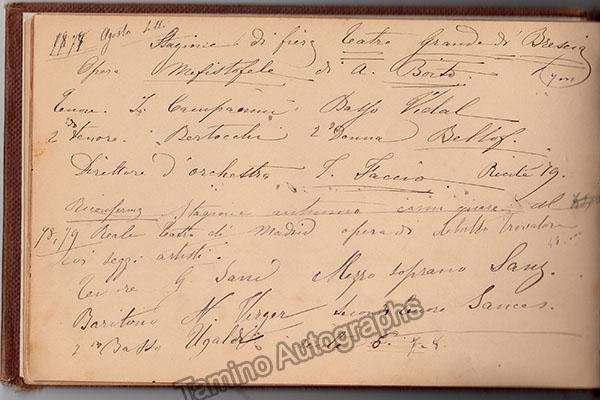 1878 Agosto Sett. Stagione di fiera Teatro Grande di Brescia
Opera Mefistofele di A. Boito.
Tenore. I. Campanini Basso Vidal
2do Tenore. Bertocchi 2da Donna Bellof.
Direttore d'orchestra F. Faccio. Recite 19.
Riconferma Stagione autunno al
78.79 Reale Teatro di Madrid opera di Trovatore
coi seg. artisti.
Tenore G Sani Mezzo soprano Sanz.
Baritono N. Verger secondo tenore Sances.
2do Basso Ugalde
Tamino Autographs